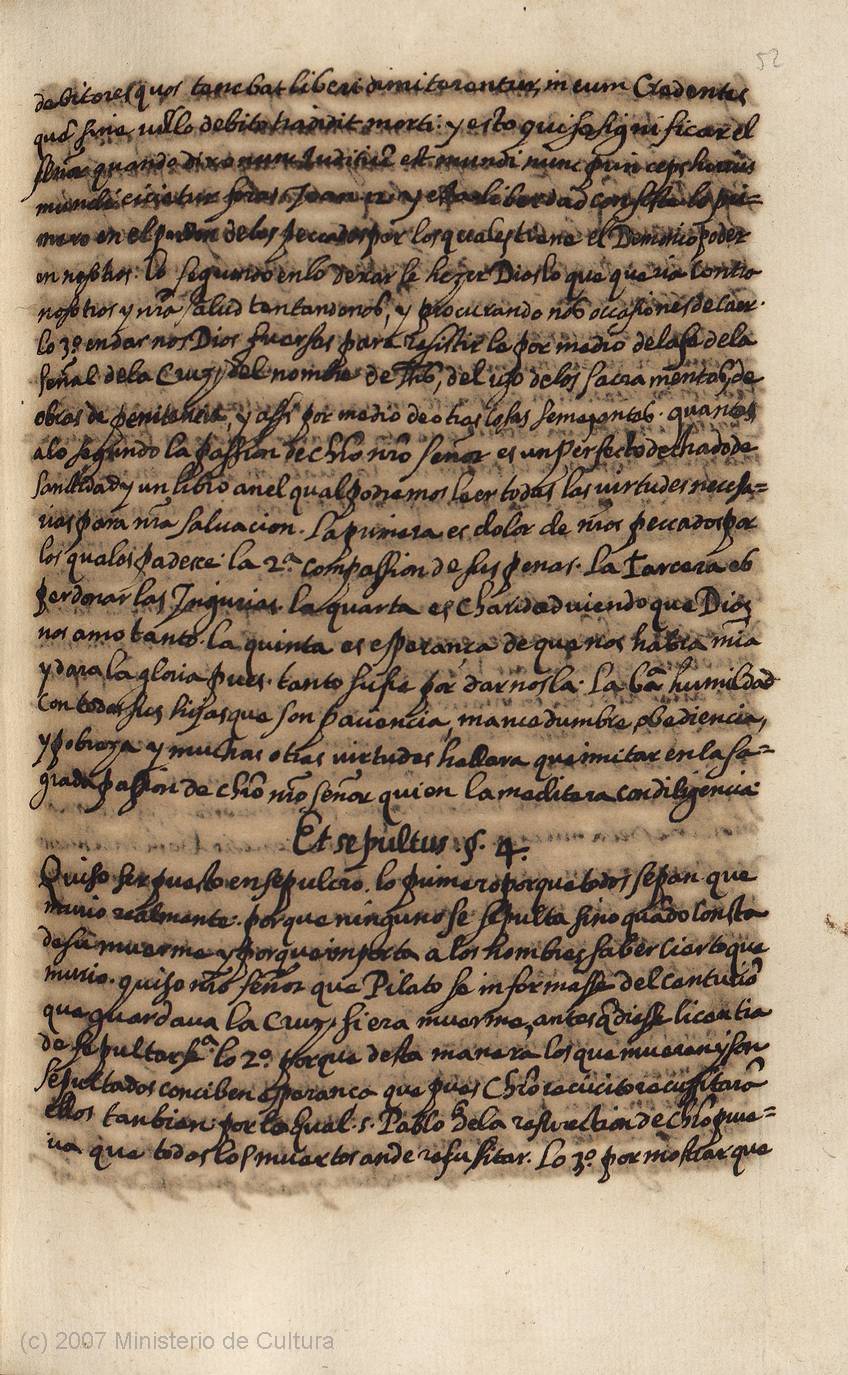 52
debitores quos tenebat liberi dimiterentur, in eum Credentes
quē sine ullo debito tradidit morti. y esto quiso significar el
señor quando dixo nunc Juditiū est mundi nunc princeps huius
mundi eicietur foras. Joan 12. y esta libertad consiste lo pri=
mero en el perdon de los peccados por los quales tiene el Demonio poder
en nosotros. lo segundo en lo dexar le hazer Dios lo que queria contra
nosotros y nrā salud tentandonos, y procurando nos occasiones de caer.
lo 3º en dar nos Dios fuersas para resistir le por medio de la fe de la
señal de la Cruz, del nombre de Jhs, del uso de los sacramentos, de
obras de penitencia, y assi por medio de otras cosas semejantes. quanto
a lo segundo la passion de chrō nrō señor es un perfecto dechado de
santidad y un libro en el qual podremos leer todas las virtudes necesa=
rias para nrā salvacion. La primera es dolor de nrōs peccados por
los quales padece. la 2ª compassion de sus penas. La tercera es
perdonar las Injurias. la quarta es charidad viendo que Dios
nos amo tanto. la quinta es esperanza de que nos habra mīa
y dara la gloria pues tanto sufre por dar nosla. La 6ª humildad
con todas sus hijas que son paciencia, mancedumbre, obediencia,
y pobreza y muchas otras virtudes hallara que imitar en la sa=
grada passion de chrō nrō señor quien la meditera con diligencia.
Et sepultus. §. 4.
Quiso ser puesto en sepulcro. lo primero porque todos sepan que
murio realmente. porque ninguno se sepulta sino quādo consta
de su muerte y porque importa a los hombres saber cierto que
murio. quiso nrō señor que Pilato se informasse del centuriō
que guardava la Cruz, si era muerto, antes q̄ diesse licentia
de sepultarse. lo 2º porque desta manera los que mueren y son
sepultados conciben esperança que pues Chrō recucito recussitarā
ellos tanbien. por lo qual s. Pablo de la resurection de chrō prue=
va que todos los muertos an de resusitar. Lo 3º por mostrar que
(c) 2007 Ministerio de Cultura